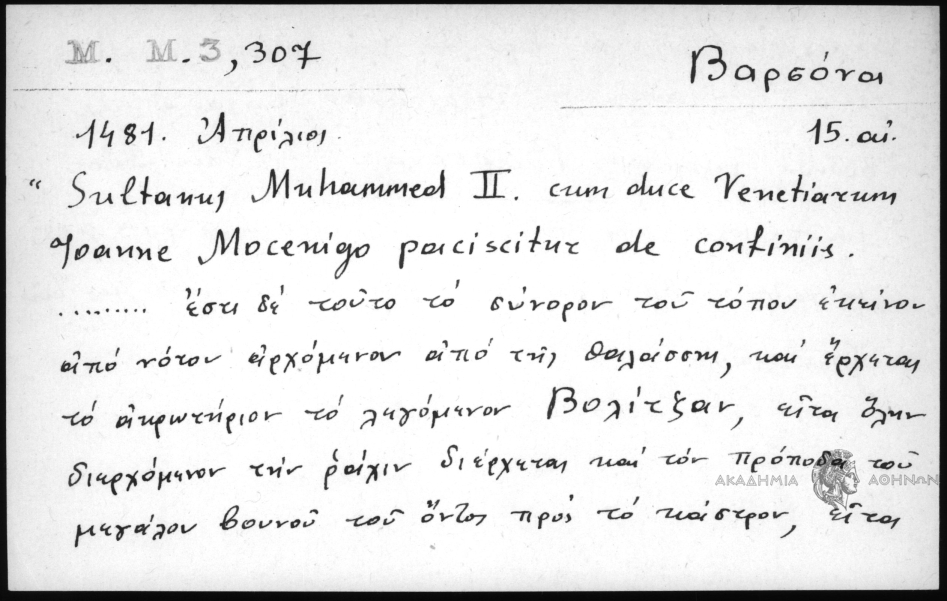 M. M. 3, 307
Βαρσόνα
1481. Ἀπρίλιος.
15. αἰ.
“ Sultanus Muhammed II. cum duce Venetiarum
Joanne Mocenigo paciscitur de confiniis.
......... ἔστι δέ τοῦτο τό σύνορον τοῦ τόπου ἐκείνου
ἀπό νότου ἀρχόμενον ἀπό τῆς θαλάσσης, καί ἔρχεται
τό ἀκρωτήριον τό λεγόμενον Βολίτζαν, εἶτα ὅλην
διερχόμενον τήν ῥάχιν διέρχεται καί τόν πρόποδα τοῦ
ΑΚΑΔΗΜΙΑ ΑΘΗΝΩΝ
μεγάλου βουνοῦ τοῦ ὄντος πρός τό κάστρον, εἶτα